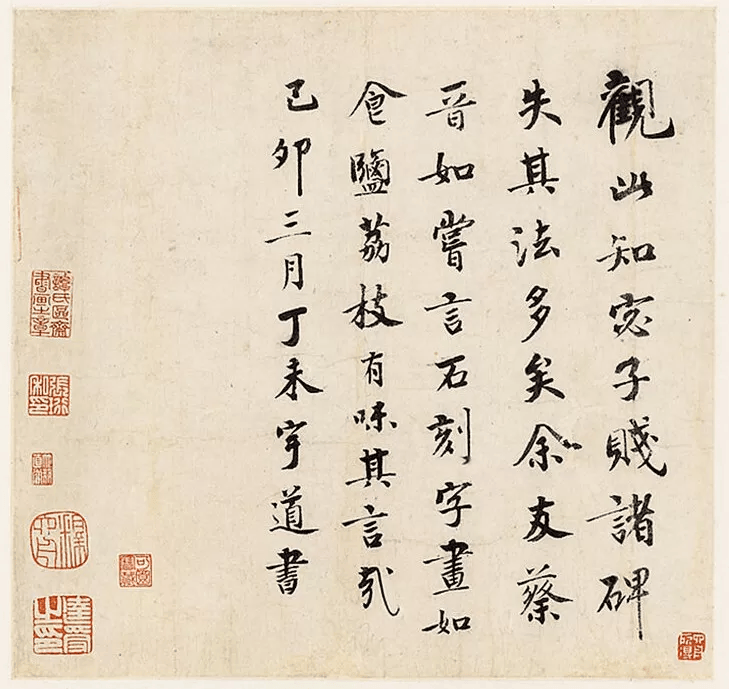 觀此知宓子賤諸碑
失其法多矣余友蔡
晋如嘗言石刻字畫如
食鹽荔枝有味其言哉
己卯三月丁未宇道書